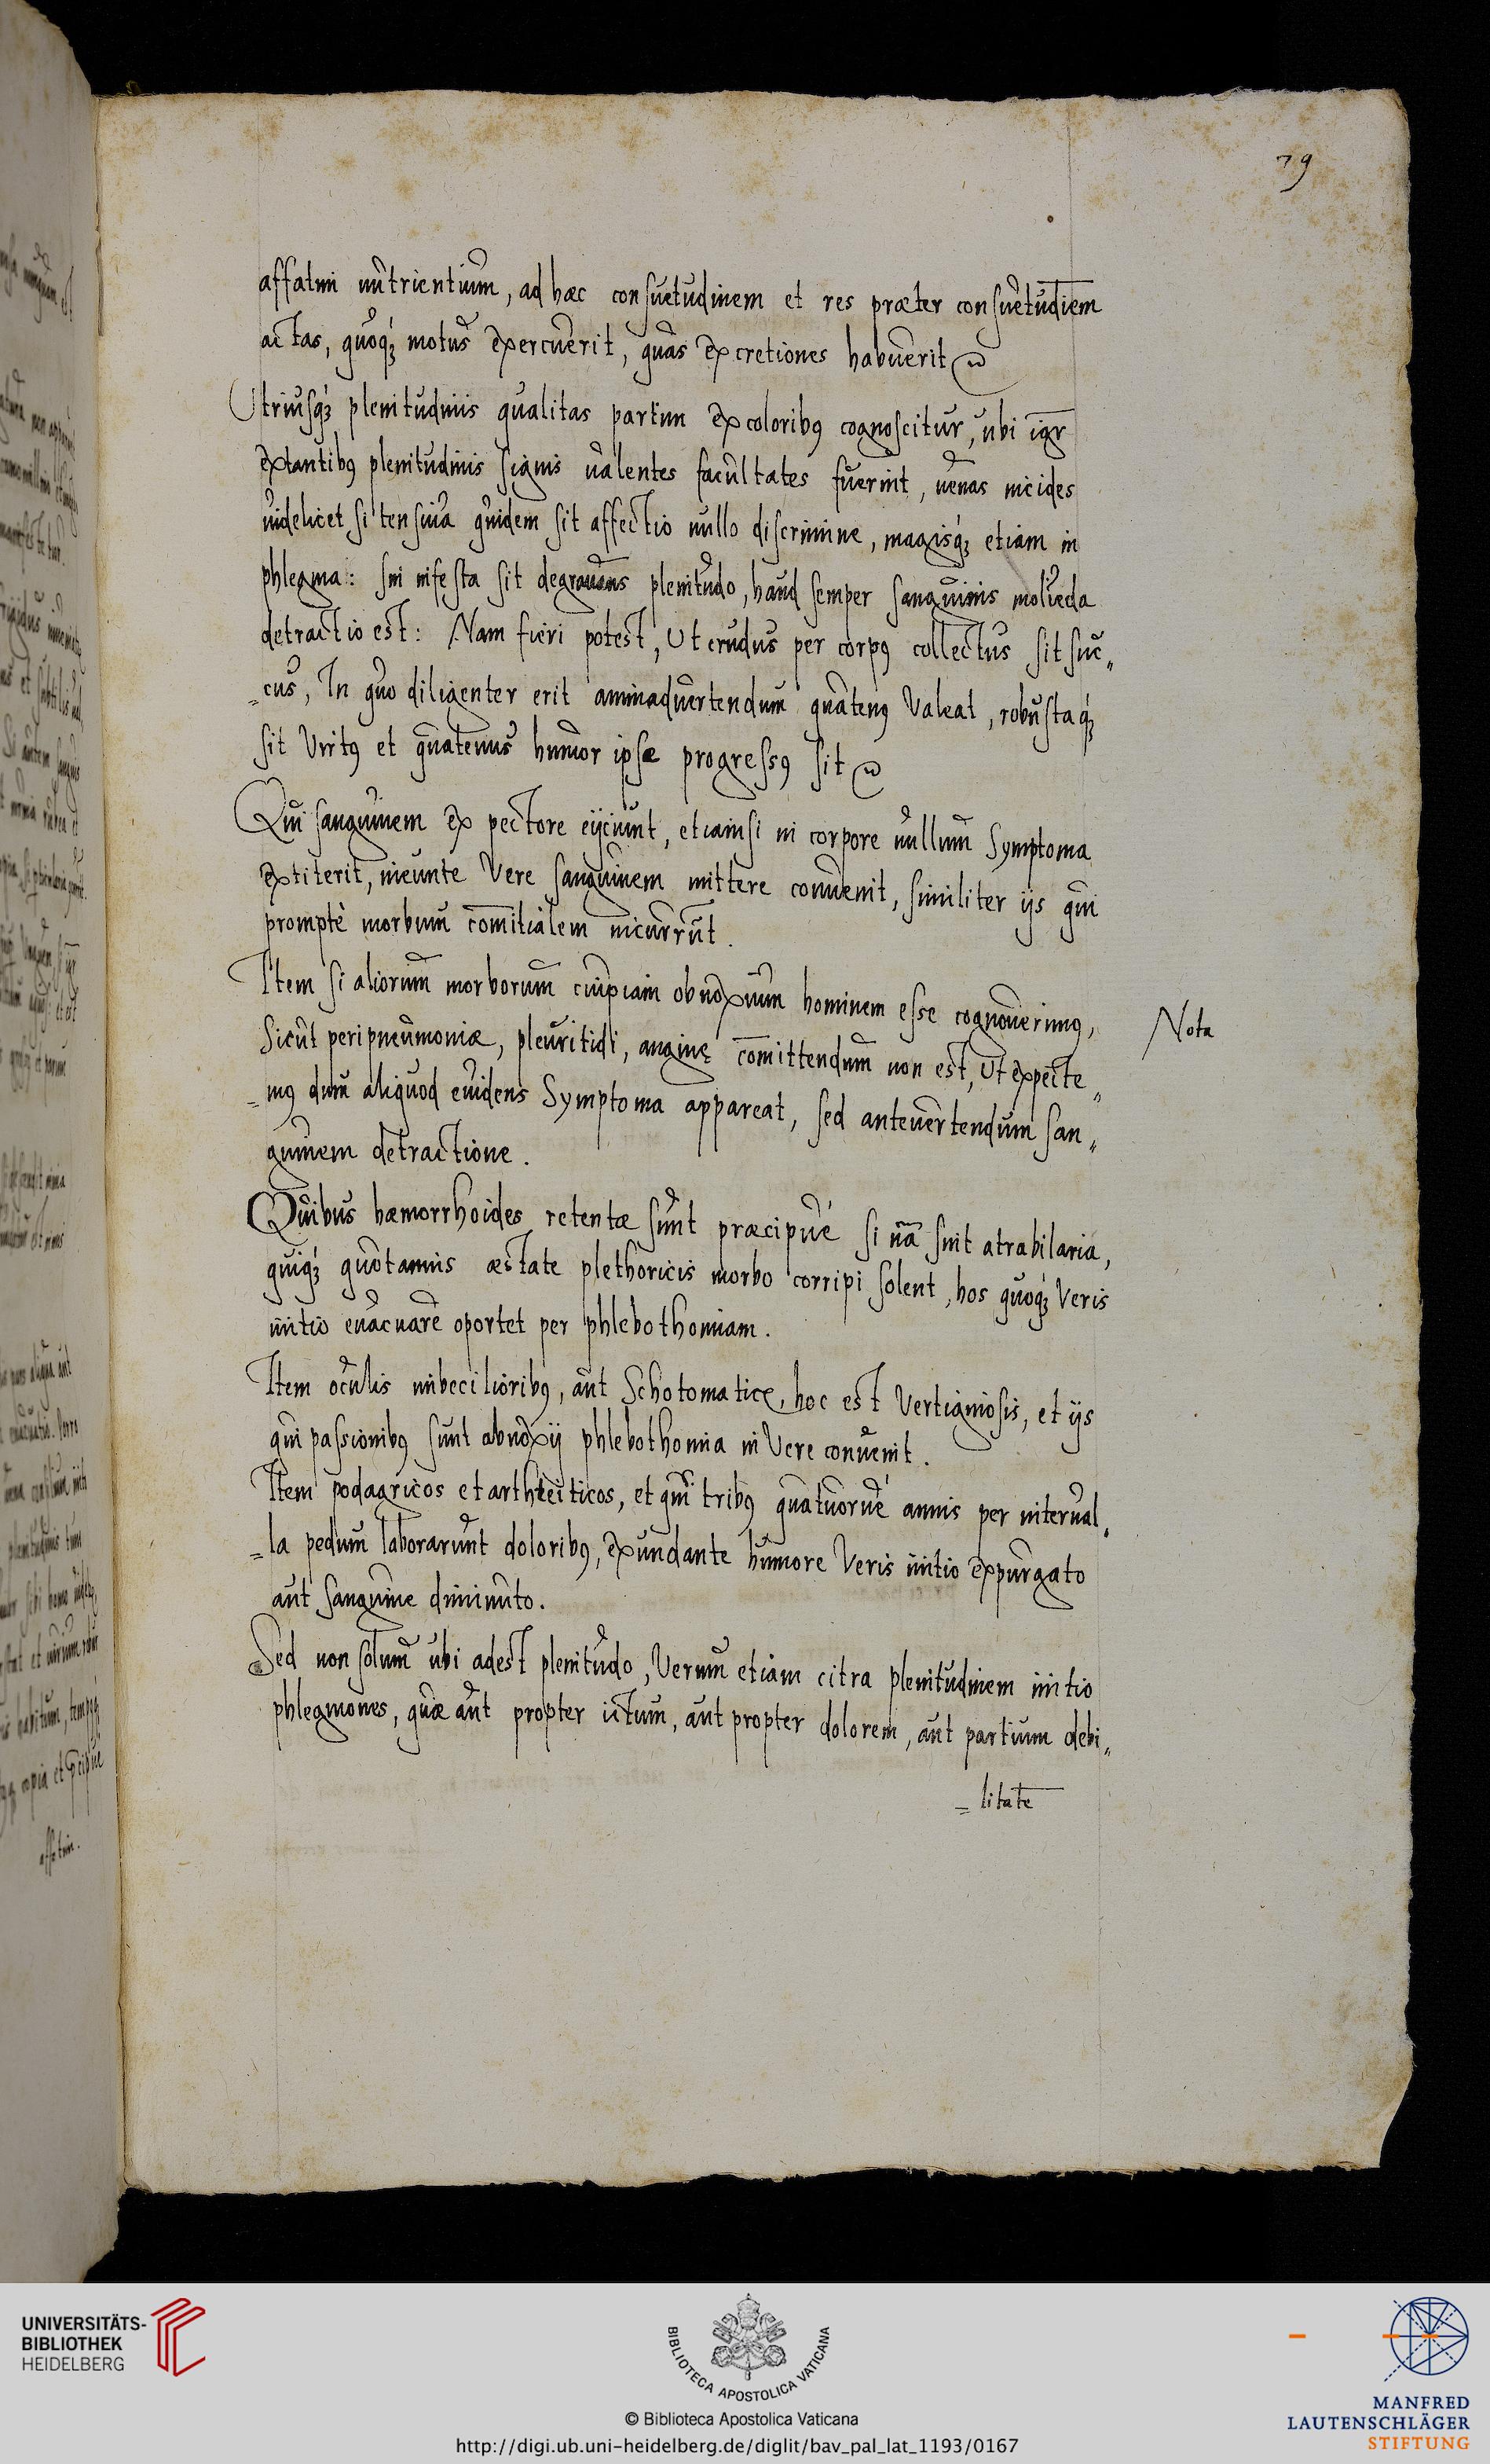 79
affatim nutrientium, ad hæc consuetudinem et res præter consuetudiem
actas, quoqʒ motus exercuerit, quas excretiones habuerit
Utriusqʒ plenitudinis qualitas partim ex coloribꝰ cognoscitur, ubi igr
extantibꝰ plenitudinis signis ualentes facultates fuerint, uenas incides
uidelicet si tensiua quidem sit affectio nullo discrimine, magisqʒ etiam in
phlegma: Sin infesta sit degrauans plenitudo, haud semper sanguinis molieda
detractio est: Nam fieri potest, Ut crudus per corpꝰ collectus sit suc„
=cus, In quo diligenter erit animaduertendum quatenꝰ Valeat, robustaqʒ
sit Virtꝰ et quatenus humor ipse progressꝰ sit
Qui sanguinem ex pectore eijciunt, etiamsi in corpore nullum Symptoma
extiterit, ineunte Vere sanguinem mittere conuenit, similiter ijs qui
prompte morbum comitialem incurrut.
Item si aliorum morborum cuipiam obnoxium hominem esse cognouerimꝰ,
Nota
Sicut peripneumoniæ, pleuritidi, anginę comittendum non est, Ut expecte„
=mꝰ dum aliquod euidens Symptoma appareat, sed anteuertendum san„
guinem detractione.
Quibus hæmorrhoides retentæ sunt præcipuè si nā sint atrabilaria,
quiqʒ quotannis æstate plethoricis morbo corripi solent, hos quoqʒ Veris
initio euacuare oportet per phlebothomiam.
Item oculis imbecilioribꝰ, aut Schotomaticę, hoc est Vertiginosis, et ijs
qui passionibꝰ sunt abnoxij phlebothomia in Vere conuenit.
Item podagricos et arthteiticos, et qui tribꝰ quatuorue annis per interual„
=la pedum laborarunt doloribꝰ, exundante humore Veris initio expurgato
aut sanguine diminuto.
Sed non solum ubi adest plenitudo, Verum etiam citra plenitudinem initio
phlegmones, quæ aut propter ictum, aut propter dolorem, aut partium debi„
=litate
UNIVERSITÄTS-
BIBLIOTHEK
HEIDELBERG
BIBLIOTECA APOSTOLICA VATICANA
© Biblioteca Apostolica Vaticana
http://digi.ub.uni-heidelberg.de/diglit/bav_pal_lat_1193/0167
MANFRED
LAUTENSCHLÄGER
STIFTUNG